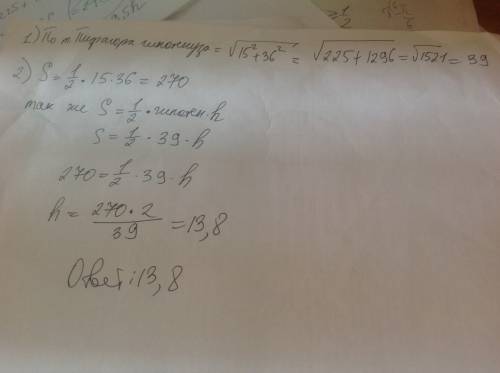 1) По т Пифагора гипотенуза = √15²+36² = √225+1296 = √1521 = 39
2) S = 1/2 · 15 · 36 = 270
так же S = 1/2 · гипотен. h
S = 1/2 · 39 · h
270 = 1/2 · 39 · h
h = 270 · 2 / 39 = 13,8
Ответ: 13,8